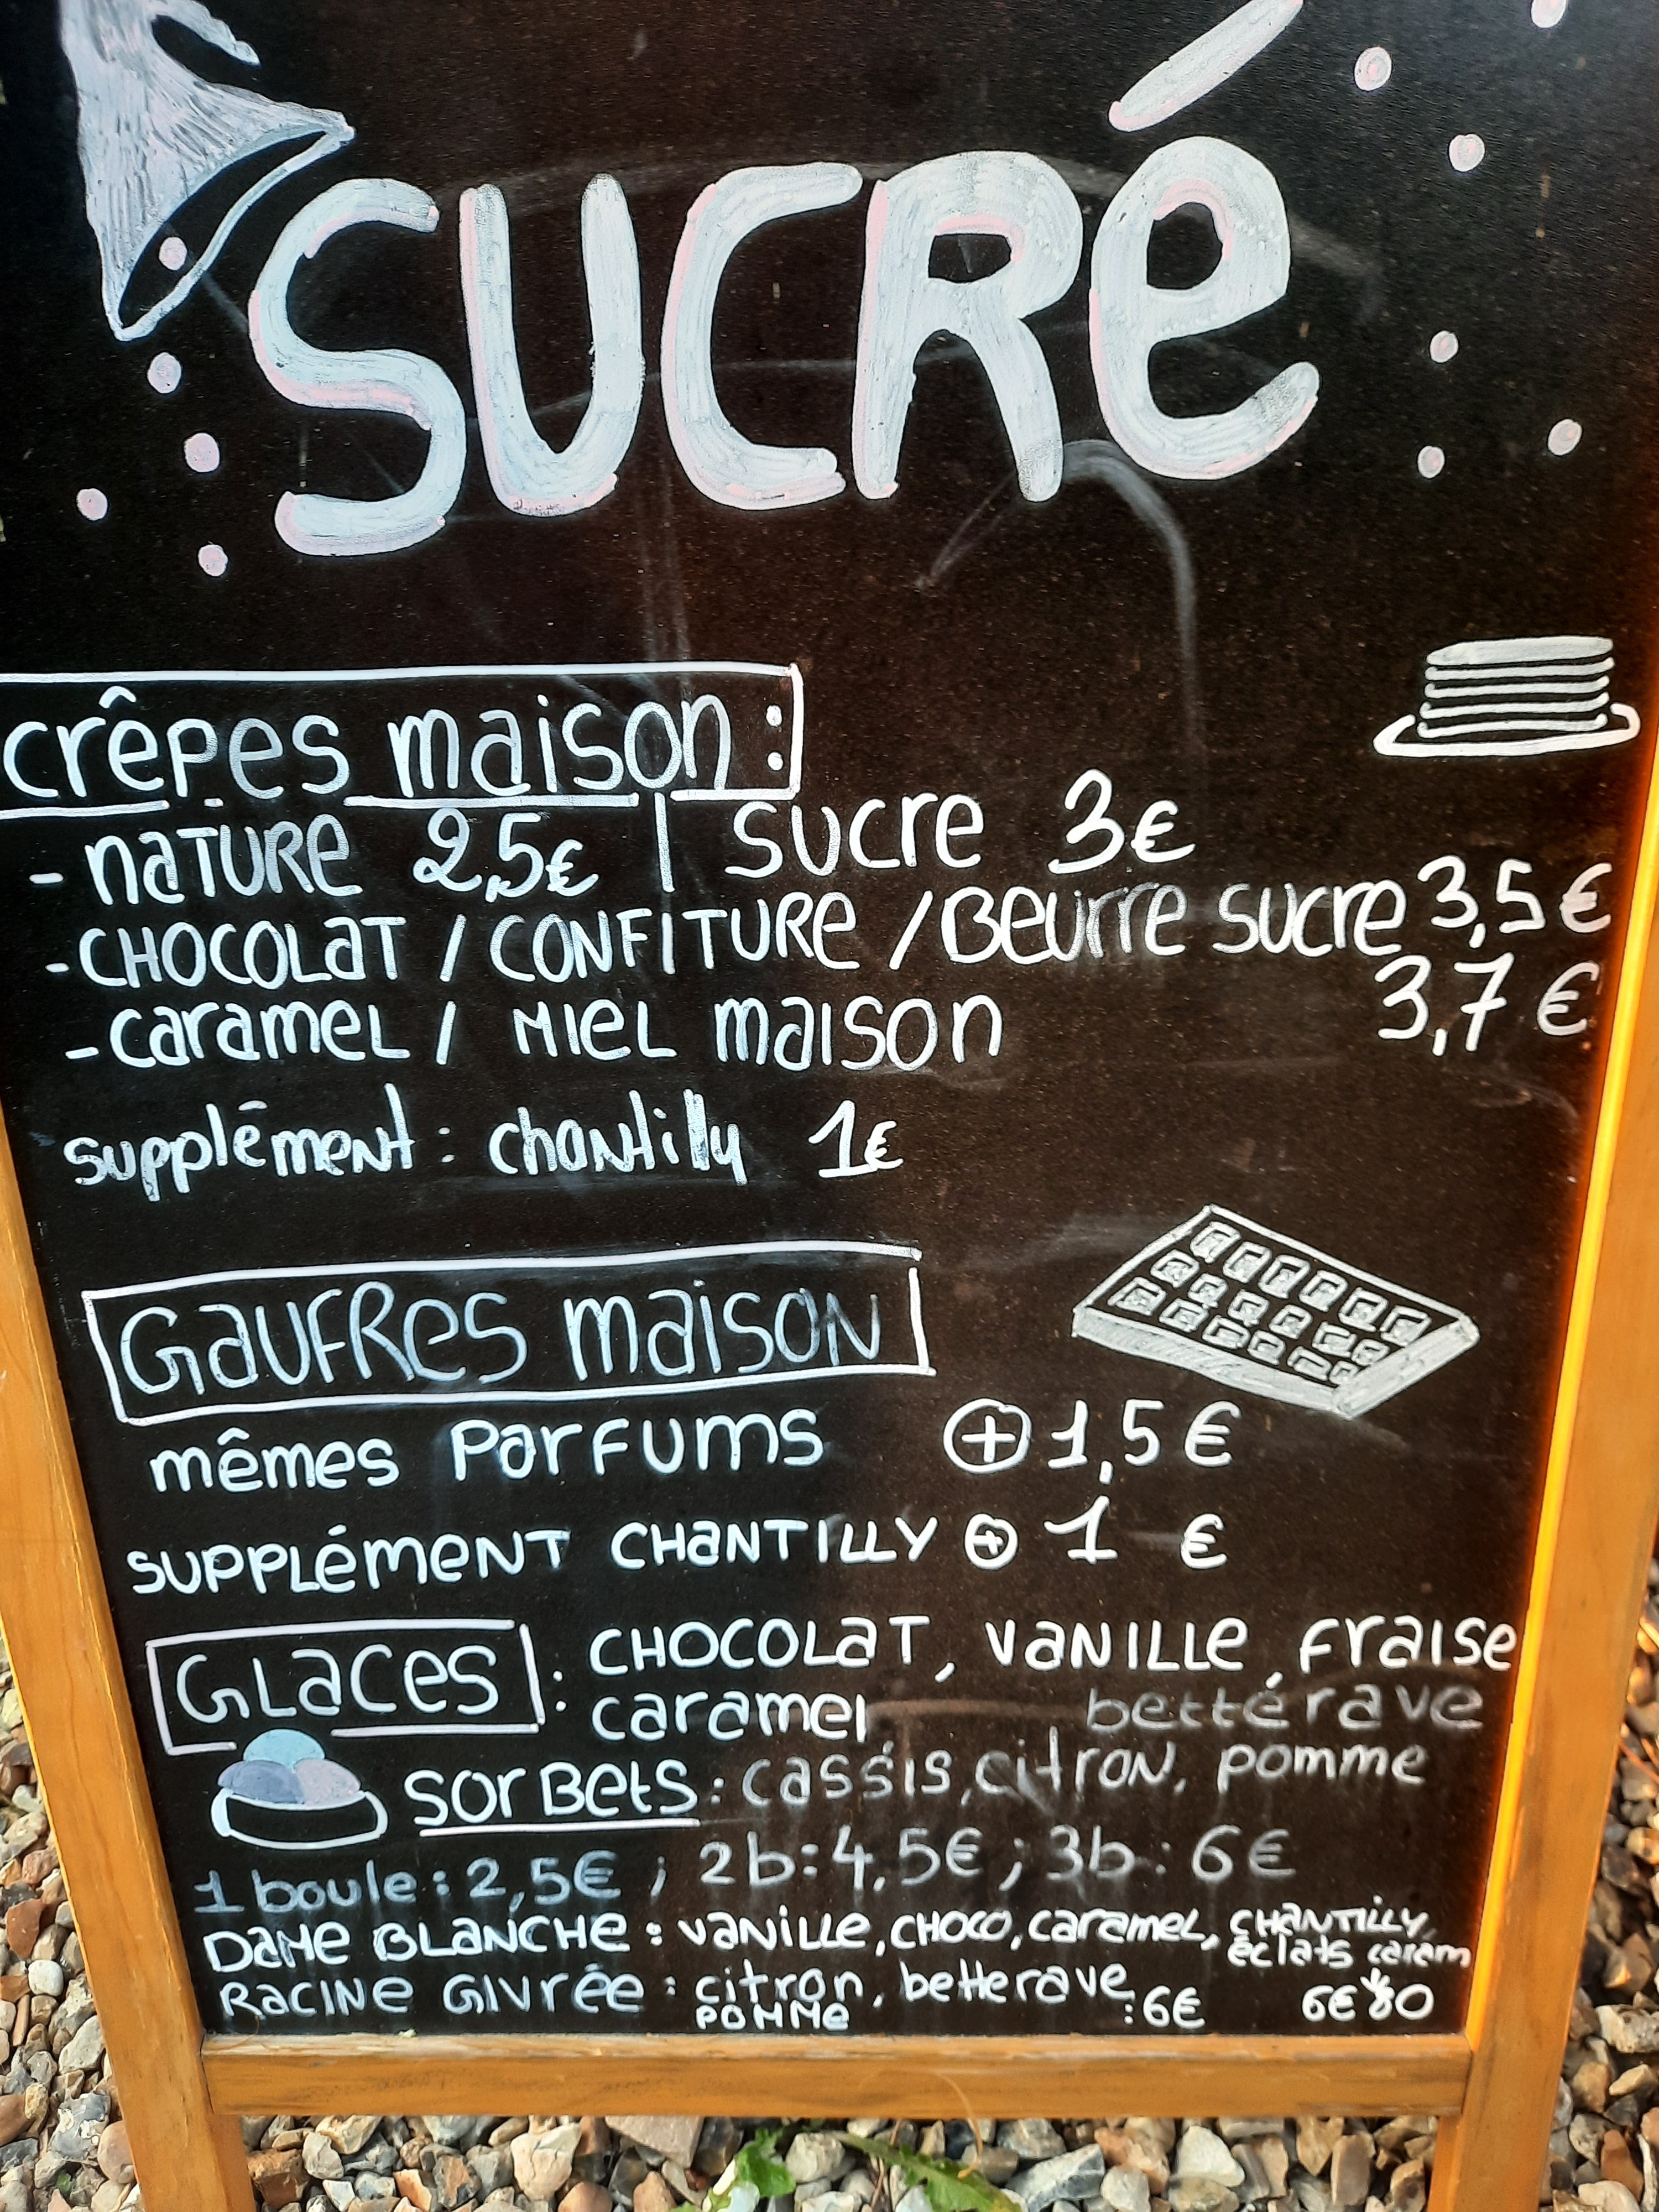 SUCRÉ
crêpes maison :
- NATURE 2,5€ | sucre 3€
- CHOCOLAT / CONFITURE / Beurre sucre 3,5€
- caramel / miel maison 3,7€
supplément : chantilly 1€
Gaufres maison
mêmes parfums + 1,5€
SUPPLÉMENT CHANTILLY + 1 €
GLACES : CHOCOLAT, VANILLE, Fraise
caramel, bettérave
SORBETS : cassis, citron, pomme
1 boule : 2,5€ ; 2b : 4,5€ ; 3b : 6€
DAME BLANCHE : VANILLE, CHOCO, caramel, CHANTILLY,
éclats caram
RACINE GIVRÉE : citron, betterave
POMME : 6€ 6€80